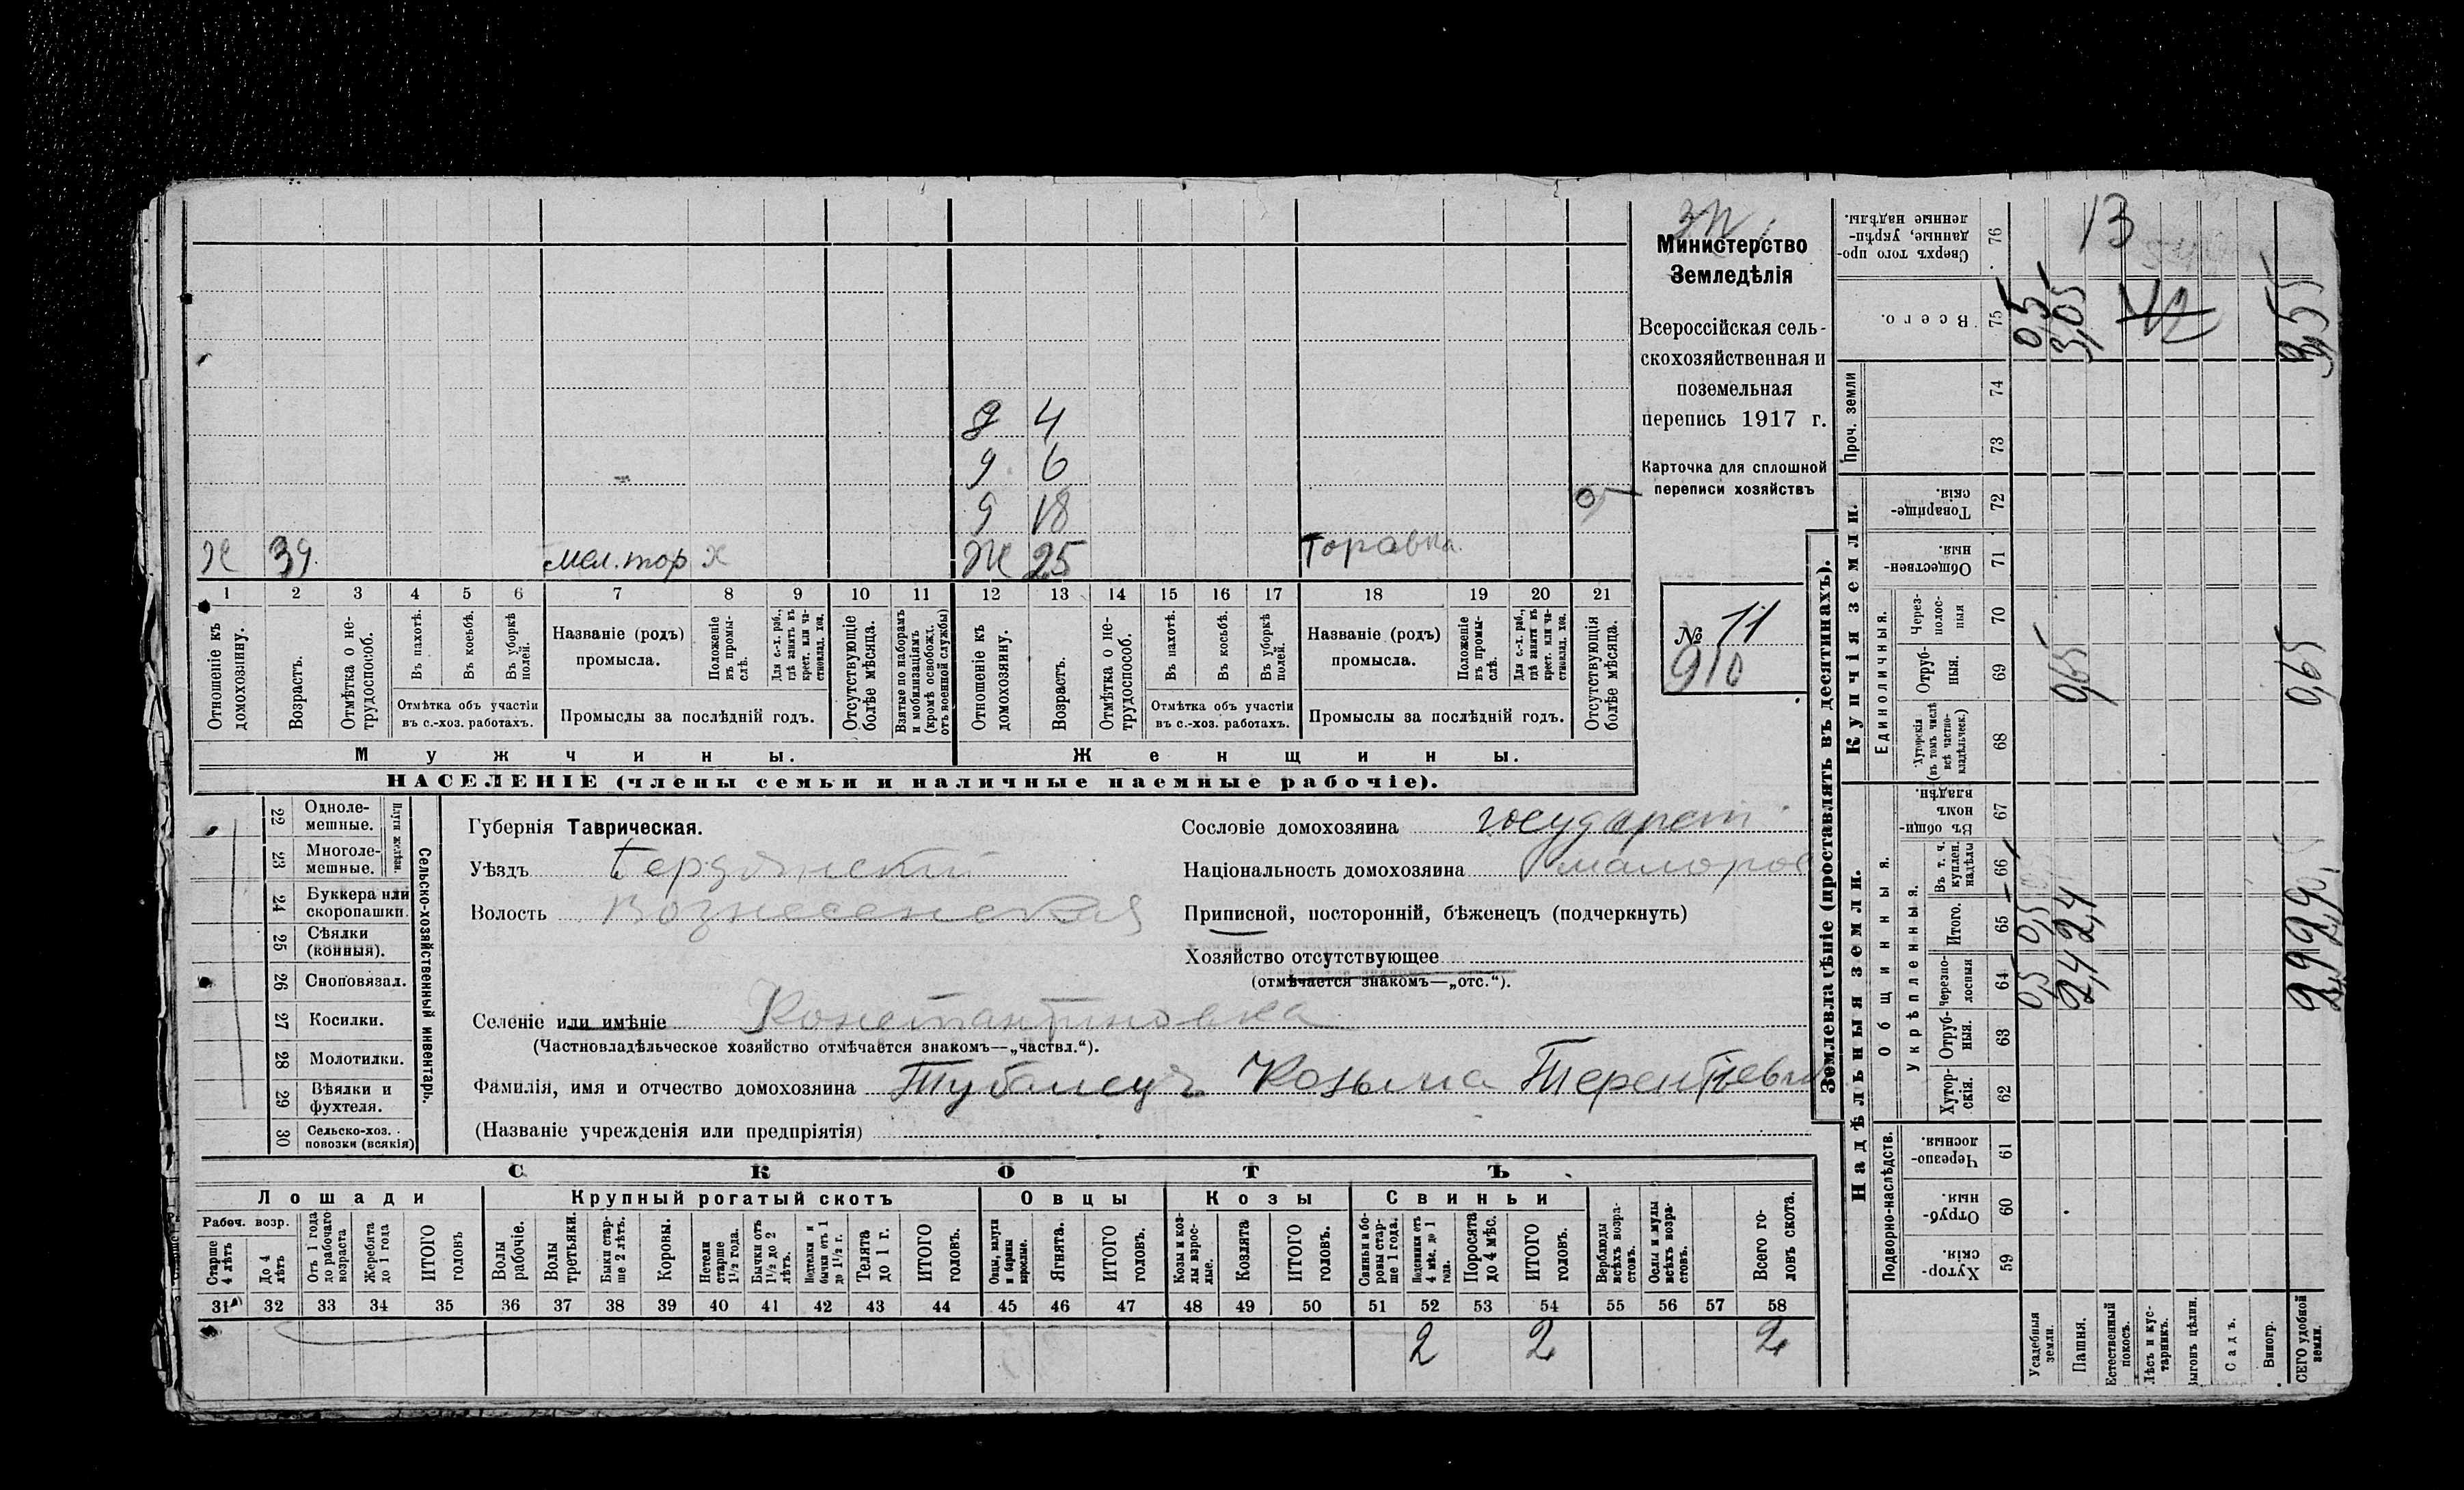 Министерство
Земледѣлія
Всероссійская сель-
скохозяйственная и
поземельная
перепись 1917 г.
Карточка для сплошной
переписи хозяйствъ
№ 11
910
9 4
9 6
9 18
Ж 25
39
мел. тор х
1 2 3 4 5 6 7 8 9 10 11 12 13 14 15 16 17 18 19 20 21
Отношеніе къ домохозяину.
Возрастъ.
Отмѣтка о не-трудоспособ.
Въ пахотѣ.
Въ косьбѣ.
Въ уборкѣ полей.
Отмѣтка объ участіи въ с.-хоз. работахъ.
Названіе (родъ) промысла.
Положеніе въ промы-слѣ.
Для с.-х. раб., гдѣ занятъ въ крест. или ча-стновлад. хоз.
Промыслы за послѣдній годъ.
Отсутствующіе болѣе мѣсяца.
Взятые по наборамъ и мобилизаціямъ (кромѣ освобожд. отъ военной службы)
Отношеніе къ домохозяину.
Возрастъ.
Отмѣтка о не-трудоспособ.
Въ пахотѣ.
Въ косьбѣ.
Въ уборкѣ полей.
Отмѣтка объ участіи въ с.-хоз. работахъ.
Названіе (родъ) промысла.
Положеніе въ промы-слѣ.
Для с.-х. раб., гдѣ занятъ въ крест. или ча-стновлад. хоз.
Промыслы за послѣдній годъ.
Отсутствующія болѣе мѣсяца.
Мужчины. Женщины.
НАСЕЛЕНІЕ (члены семьи и наличные наемные рабочіе).
Сельско-хозяйственный инвентарь.
Плуги желѣзн.
22 Одноле-мешные.
23 Многоле-мешные.
24 Буккера или скоропашки.
25 Сѣялки (конныя).
26 Сноповязал.
27 Косилки.
28 Молотилки.
29 Вѣялки и фухтеля.
30 Сельско-хоз. повозки (всякія)
Губернія Таврическая.
Уѣздъ Бердянский
Волость Вознесенская
Селеніе или имѣніе Константиновка
(Частновладѣльческое хозяйство отмѣчается знакомъ—„частвл.“).
Фамилія, имя и отчество домохозяина Козьма Терентіевич
(Названіе учрежденія или предпріятія)
Сословіе домохозяина государст
Національность домохозяина малорос
Приписной, посторонній, бѣженецъ (подчеркнуть)
Хозяйство отсутствующее
(отмѣчается знакомъ—„отс.“).
СКОТЪ
Лошади Крупный рогатый скотъ Овцы Козы Свиньи
Рабоч. возр.
Старше 4 лѣтъ
До 4 лѣтъ
Отъ 1 года до рабочаго возраста
Жеребята до 1 года
ИТОГО головъ
Волы рабочіе.
Волы третьяки.
Быки стар-ше 2 лѣтъ.
Коровы.
Нетели старше 1½ года.
Бычки отъ 1½ до 2 лѣтъ.
Подтелки и бычки отъ 1 до 1½ г.
Телята до 1 г.
ИТОГО головъ.
Овцы, валухи и бараны взрослые.
Ягнята.
ИТОГО головъ.
Козы и коз-лы взрос-лые.
Козлята
ИТОГО головъ.
Свиньи и бо-ровы стар-ше 1 года.
Подсвинки отъ 4 мѣс. до 1 года.
Поросята до 4 мѣс.
ИТОГО головъ.
Верблюды всѣхъ возра-стовъ.
Ослы и мулы всѣхъ возра-стовъ.
Всего го-ловъ скота.
31 32 33 34 35 36 37 38 39 40 41 42 43 44 45 46 47 48 49 50 51 52 53 54 55 56 57 58
2 2 2
Землевладѣніе (проставлять въ десятинахъ).
Надѣльныя земли.
Подворно-наслѣдств.
Хутор-скія. 59
Отруб-ныя. 60
Черезпо-лосныя. 61
Общинныя.
Укрѣпленныя.
Хутор-скія. 62
Отруб-ныя. 63
Черезпо-лосныя 64 0,5 2,4 2,9
Итого. 65 0,5 2,4 2,9
Въ т. ч. куплен. надѣлы 66
Въ общин-номъ владѣн. 67
Купчія земли.
Единоличныя.
Хуторскія (въ томъ числѣ всѣ частно-владѣльческ.) 68
Отруб-ныя. 69 0,65 0,65
Через-полос-ныя 70
Обществен-ныя. 71
Товарище-скія. 72
Проч. земли
73 74
Всего. 75 0,5 3,05 3,55
Сверхъ того про-данные, укрѣп-ленные надѣлы. 76
13
Усадебныя земли.
Пашня.
Естественный покосъ.
Лѣсъ и кус-тарникъ.
Выгонъ цѣлин.
Садъ.
Виногр.
ВСЕГО удобной земли.